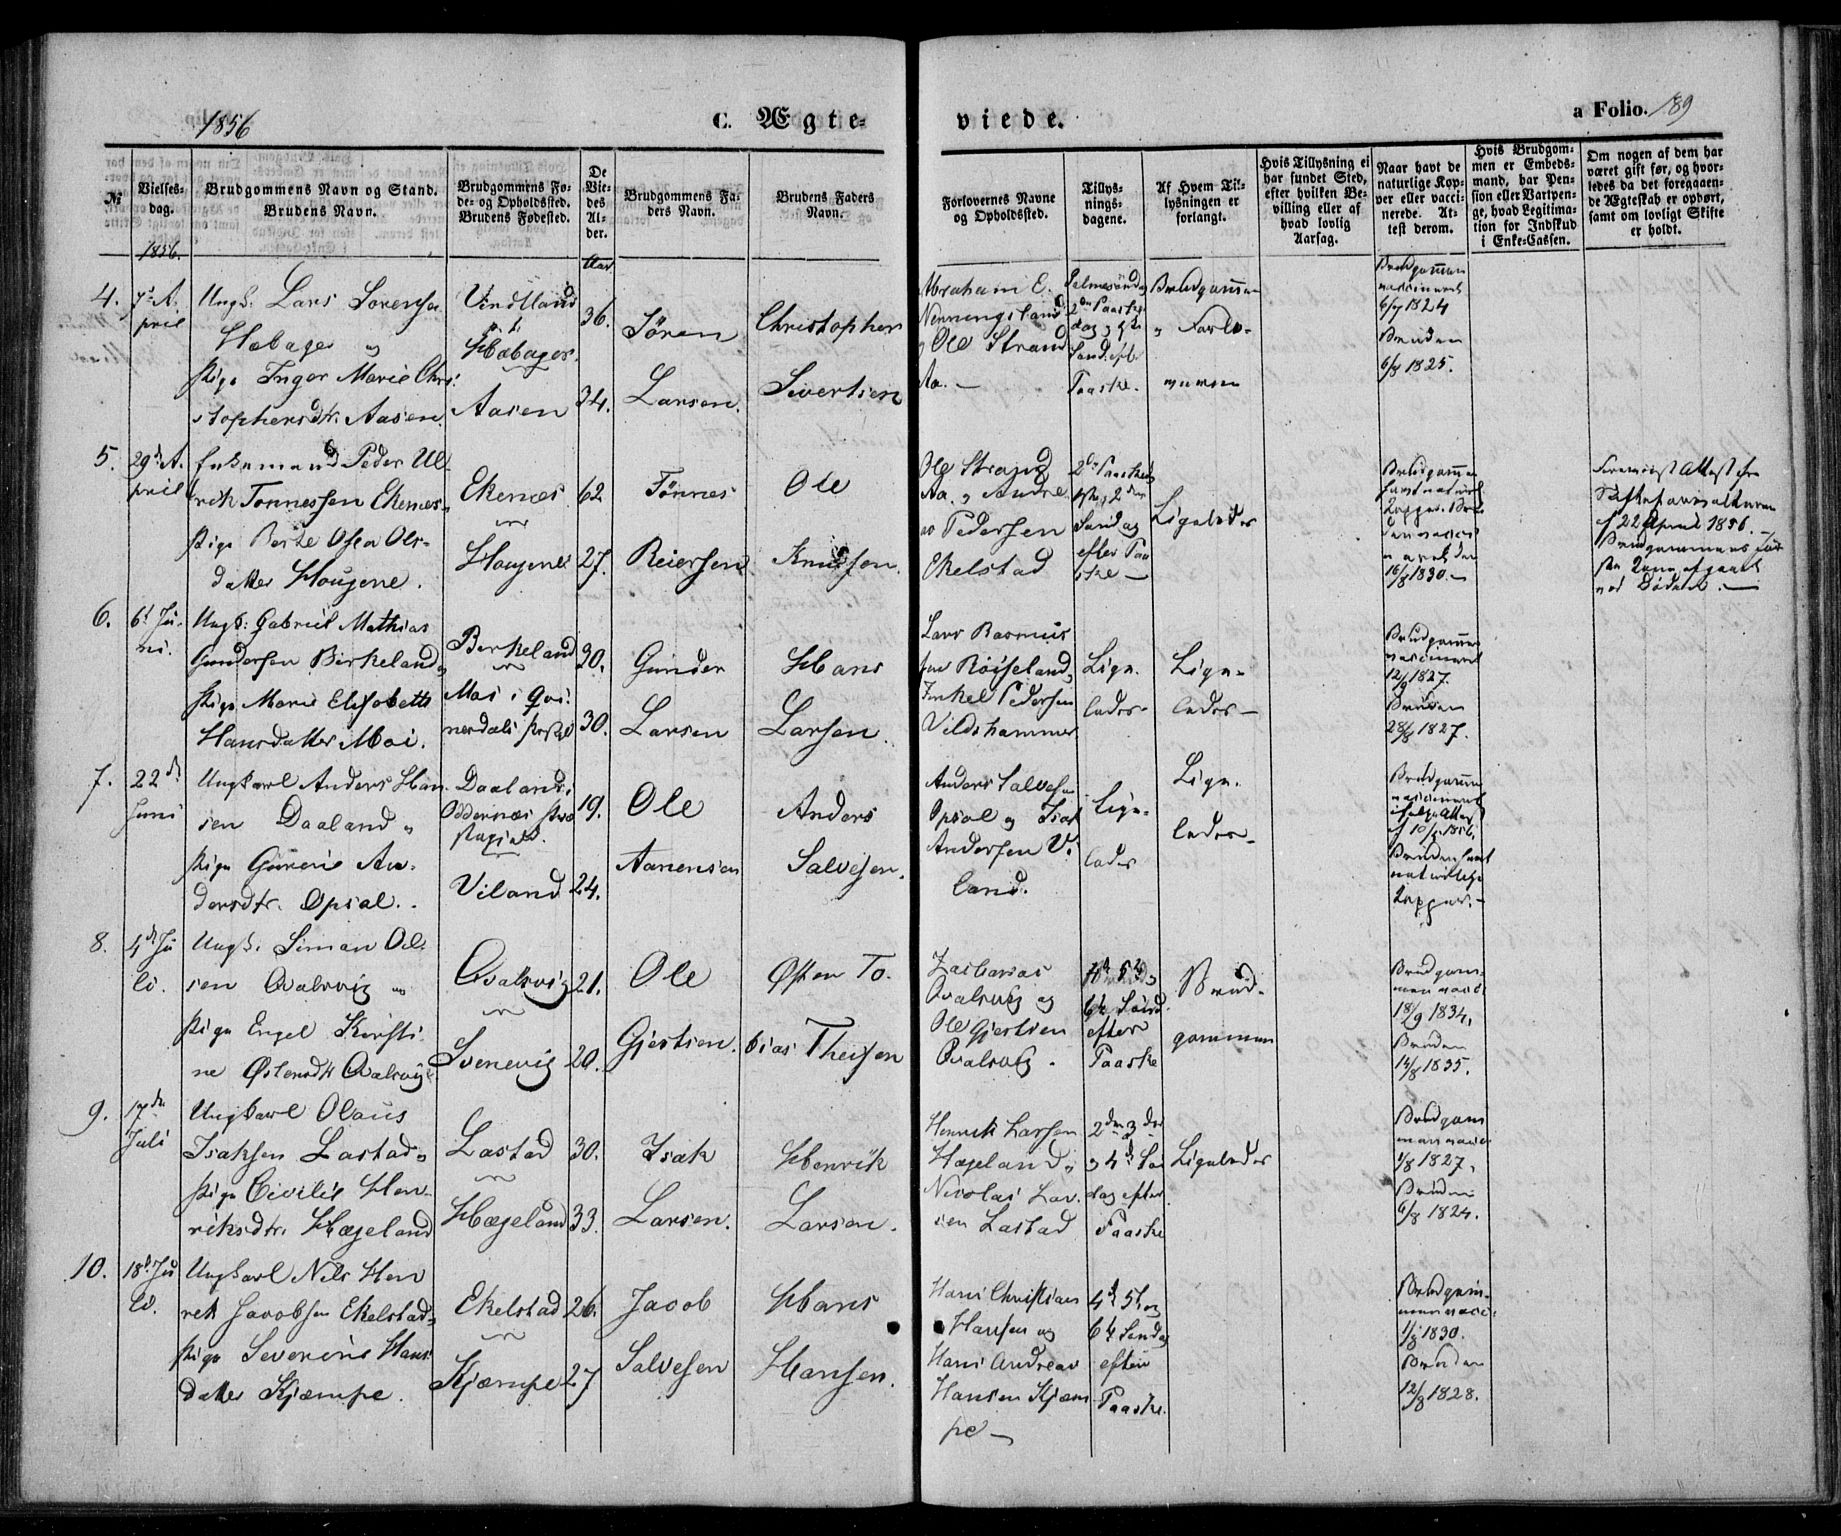 1856
C. Ægte-
viede.
a Folio. 189
№
Vielses-
dag.
Brudgommens Navn og Stand.
Brudens Navn.
Brudgommens Fø-
de- og Opholdssted.
Brudens Fødested.
De
Vie-
des
Al-
der.
Brudgommens Fa-
ders Navn.
Brudens Faders
Navn.
Forlovernes Navne
og Opholdssted.
Tillys-
nings-
dagene.
Af Hvem Til-
lysningen er
forlangt.
Hvis Tillysning ei
har fundet Sted,
efter hvilken Be-
villing eller af
hvad lovlig
Aarsag.
Naar havt de
naturlige Kop-
per eller vacci-
nerede. At-
test derom.
Hvis Brudgom-
men er Embeds-
mand, har Pen-
sion eller Vartpen-
ge, hvad Legitima-
tion for Indskud
i Enke-Cassen.
Om nogen af dem har
været gift før, og hvor-
ledes da det foregaaen-
de Ægteskab er ophørt,
samt om lovligt Skifte
er holdt.
1856.
Aar
4.
7de A-
pril
Ungk. Lars Sørensen
Hobager og
Pige Inger Marie Chri-
stophersdtr. Aasen
Vindtland
Hobager.
Aasen
36.
34.
Søren
Larsen.
Christopher
Sivertsen
Abraham E.
Nenningsland
og Ole Strand
Aa. —
Palmesønda
2den Paaske-
dag og 1ste
Sønd. eft.
Paaske.
Brudgommen
og Forlo-
veren
Brudgommen
vaccineret
6/7 1824
Bruden
6/8 1825.
5.
29de A-
pril
Enkemand Peder Ul-
rik Tønnessen Ekenæs
Pige Berte Olea Ols-
datter Hougene.
Ekenæs
Hougene
62
27.
Tønnes
Reiersen
Ole
Knudsen.
Ole Strand
Aa. og Andre-
as Pedersen
Ekelstad
2den Paaskeda
1ste, 2den
Søndag
efter Paa
ske —
Ligeledes
Brudgommen
havt naturl.
Kopper. Bru
den vacci
neret den
16/8 1830. —
Fremvist Attest fra
Skifteforvalteren
af 22 April 1856. —
Brudgommens før
ste Kone afgaaet
ved Døden. —
6.
6te Ju-
ni.
Ungk. Gabriel Mathias
Gundersen Birkeland og
Pige Marie Elisabeth
Hansdatter Moi.
Birkeland
Moi i Qvi-
nesdals Præstegj
30.
30.
Gunder
Larsen
Hans
Larsen.
Lars Rasmus
sen Røiseland,
Terkel Pedersen
Vildshammer
Lige-
ledes-
Lige-
ledes —
Brudgommen
vaccineret
12/9 1827.
Bruden
28/8 1827.
7.
22de
Juni
Ungkarl Anders Han
sen Daaland og
Pige Gurine An-
dersdtr. Opsal.
Daaland i
Oddernæs Præ
stegjeld.
Viland
19.
24.
Ole
Aanensen
Anders
Salvesen.
Anders Salvesen
Opsal og Isak
Andersen Vi
land.
Lige-
ledes
Lige-
ledes-
Brudgommen
vaccineret
ifølge Attest
af 10/6 1856.
Bruden havt
naturlige
Kopper. —
8.
4de Ju
li.
Ungk. Simon Ol-
sen Qvalsvig og
Pige Engel Kirsti-
ne Østensdtr Qvalsvig.
Qvalsvig
Svenevig
21.
20.
Ole
Gjertsen.
Østen To-
bias Theisen
Zacharias
Qvalsvig og
Ole Gjertsen
Qvalsvig.
4de 5te og
6te Sønd.
efter
Paaske
Brud-
gommen
Brudgom-
men vacci-
18/9 1834,
Bruden
14/8 1835.
9.
17de
Juli
Ungkarl Olaus
Isaksen Lastad og
Pige Civilie Hen-
riksdtr. Hægeland
Lastad
Hægeland
30.
33.
Isak
Larsen.
Henrik
Larsen.
Henrik Larsen
Hægeland og
Nicolai Lar-
sen Lastad
2den 3die
og 4de Søn
dag efter
Paaske
Ligeledes
Brudgom
men vacci
1/8 1827,
Bruden
6/8 1824.
10.
18de Ju
li.
Ungkarl Nils Hen
rik Jacobsen Ekelstad og
Pige Severine Hans
datter Kjæmpe.
Ekelstad
Kjæmpe
26.
27
Jacob
Salvesen
Hans
Hansen.
Hans Christian
Hansen og
Hans Andreas
Hansen Kjæm
pe —
4de 5te og
6te Søndag
efter
Paaske.
Brudgom-
men vacci-
1/8 1830.
Bruden
12/8 1828.